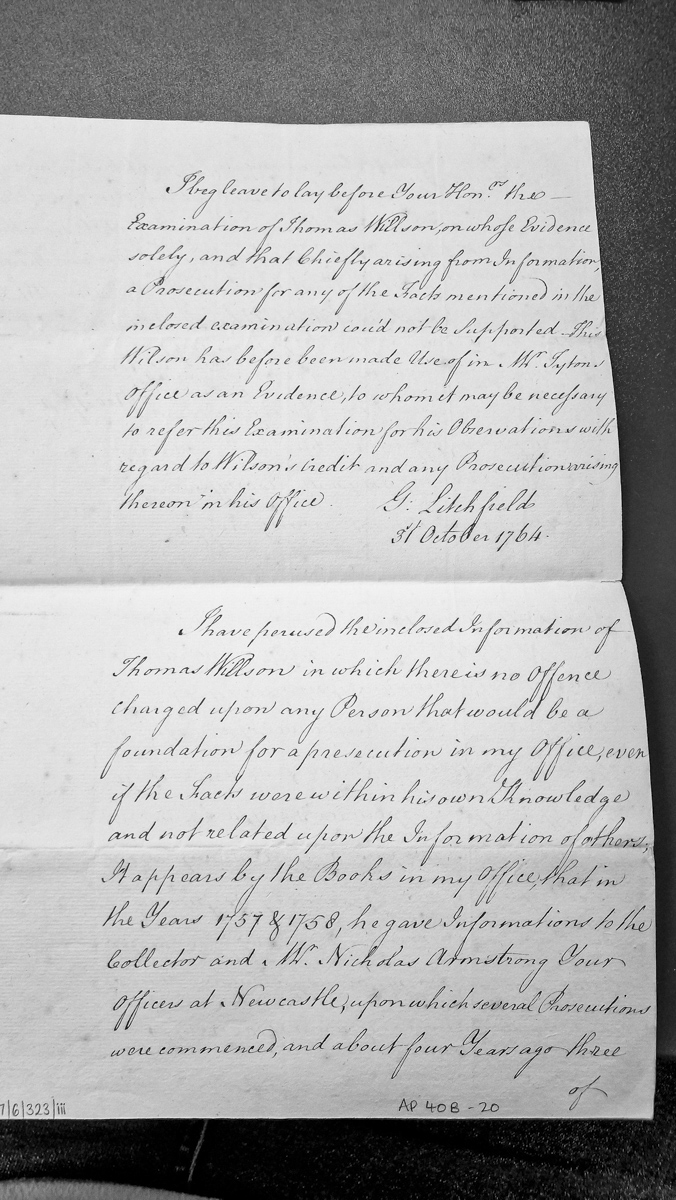 I beg leave to lay before Your Hon.rs the —
Examination of Thomas Willson, on whose Evidence
solely, and that Chiefly arising from Information,
a Prosecution for any of the Facts mentioned in the
inclosed examination cou'd not be Supported. This
Wilson has before been made Use of in Mr. Tytons
Office as an Evidence, to whom it may be necessary
to refer this Examination for his Observations with
regard to Wilson's Credit and any Prosecution arising
thereon in his Office.
G: Litchfield
31 October 1764.
I have perused the inclosed Information of
Thomas Willson in which there is no Offence
charged upon any Person that would be a
foundation for a presecution in my Office, even
if the Facts were within his own Knowledge
and not related upon the Information of others,
It appears by the Books in my Office, that in
the Years 1757 & 1758, he gave Informations to the
Collector and Mr. Nicholas Armstrong Your
Officers at Newcastle, upon which several Prosecutions
were commenced, and about four Years ago three
of
7/6/323/iii
AP 40B-20